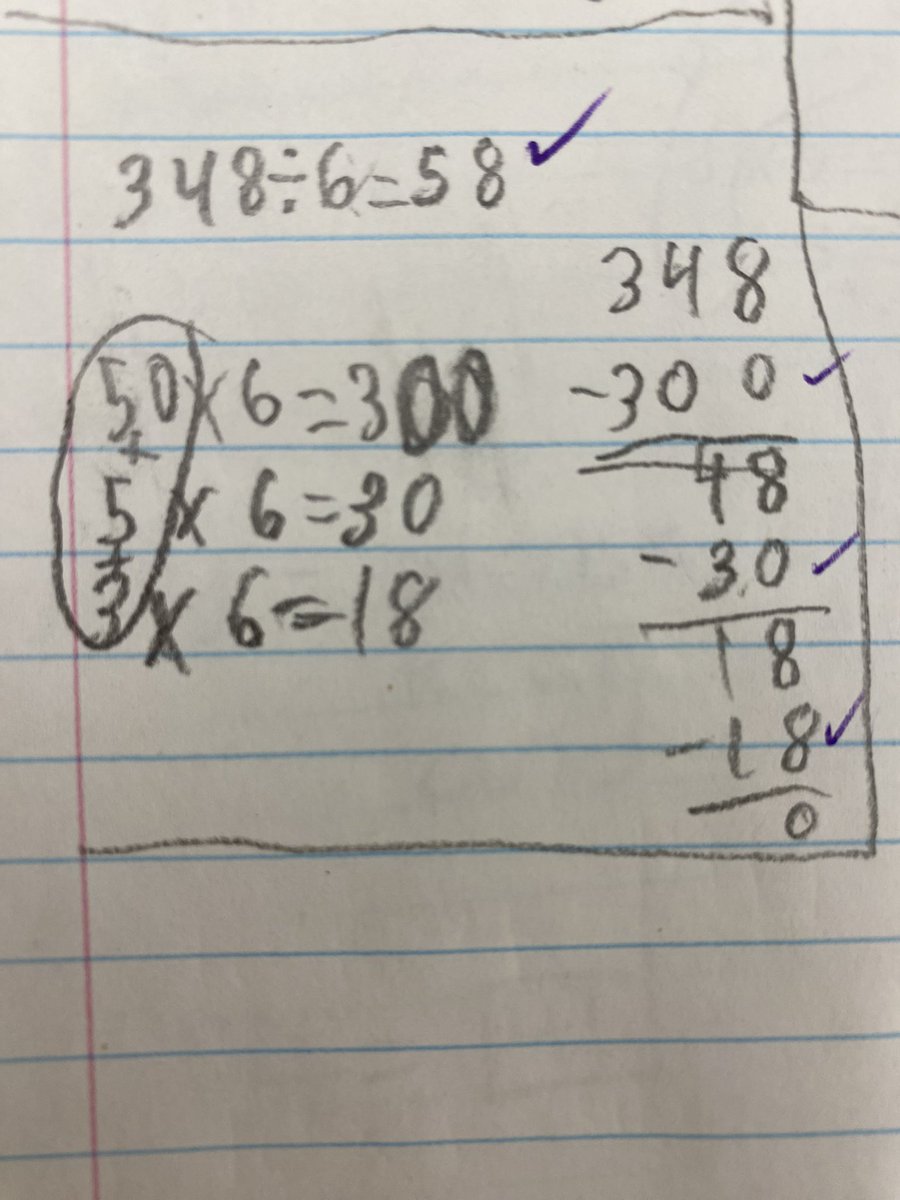 348÷6=58 ✓
348
50×6=300
-300 ✓
+
48
5×6=30
-30 ✓
+
18
3×6=18
-18 ✓
0